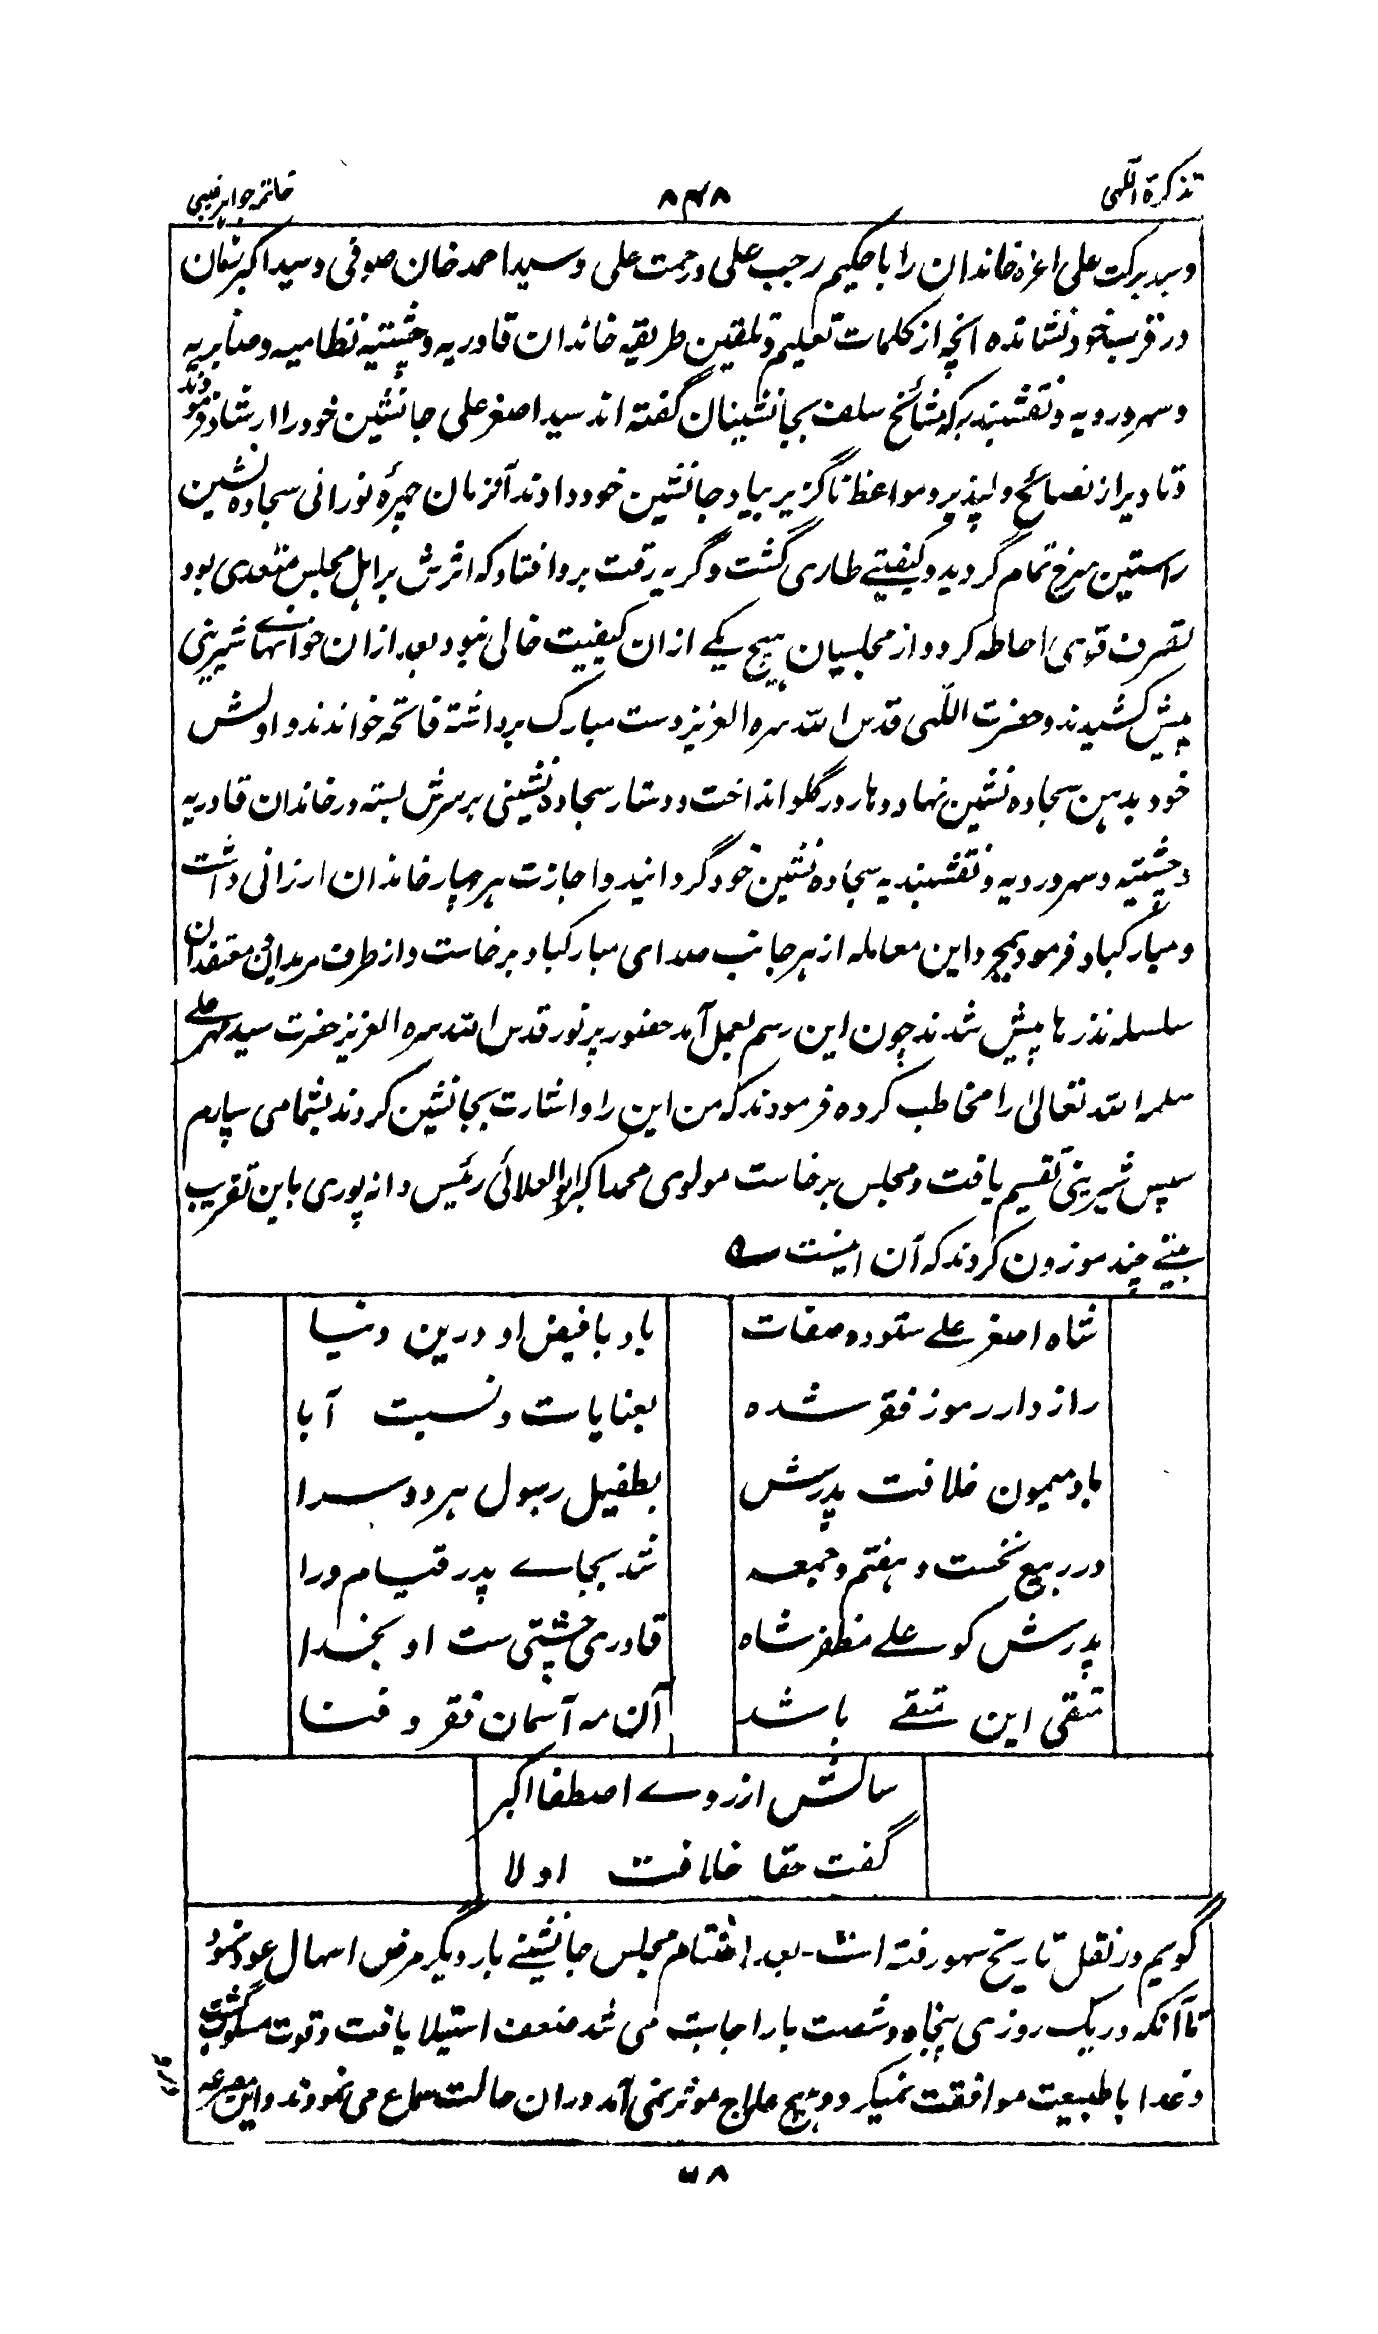 تذکرۃ اللّٰہی
۸۴۸
خاتمہ جواہر غیبی
و سید برکت علی اعزہ خاندان را با حکیم رجب علی و رحمت علی و سید احمد خان صوفی و سید اکبر شان
در قرب خود نشانده انچه از کلمات تعلیم و تلقین طریقه خاندان قادریه و چشتیه نظامیه و صابریه
و سهروردیه و نقشبندیه که مشائخ سلف بجانشینان گفته اند سید اصغر علی جانشین خود را ارشاد فرمودند
و تا دیر از نصائح دلپذیر و مواعظ ناگزیر بیاد جانشین خود دادند آنزمان چهرۀ نورانی سجاده نشین
راستین سرخ تمام گردید و کیفیتے طاری گشت و گریه رقت برو افتاد که اثرش بر اهل مجلس متعدی بود
تصرف قوی احاطه کرد و از مجلسیان هیچ یکے ازان کیفیت خالی نبود بعد ازان خوانهاے شیرینی
پیش کشیدند و حضرت اللّٰهی قدس الله سره العزیز دست مبارک برداشته فاتحه خواندند و اولش
خود بدهن سجاده نشین نهاد و هار در گلو انداخت و دستار سجاده نشینی بر سرش بسته در خاندان قادریه
و چشتیه و سهروردیه و نقشبندیه سجاده نشین خود گردانید و اجازت هر چهار خاندان ارزانی داشت
و مبارکباد فرمود بمجرد این معامله از هر جانب صدای مبارکباد برخاست و از طرف مریدان و معتقدان
سلسله نذرها پیش شدند چون این رسم بعمل آمد حضور پرنور قدس الله سره العزیز حضرت سید مهر علی
سلمه الله تعالیٰ را مخاطب کرده فرمودند که من این را و اشارت بجانشین کردند بشما می سپارم
سپس شیرینی تقسیم یافت و مجلس برخاست مولوی محمد اکبر ابوالعلائی رئیس داناپوری باین تقریب
بیتے چند موزون کردند که آن اینست ؎
شاه اصغر علے ستوده صفات باد با فیض او درین دنیا
رازدار رموز فقر شده بعنایات و نسبت آبا
باد میمون خلافت پدرش بطفیل رسول هر دو سرا
در ربیع نخست و هفتم و جمعه شد بجاے پدر قیام ورا
پدرش کو علے مظفر شاه قادری چشتی ست او بخدا
متقی ابن متقے باشد آن مه آسمان فقر و فنا
سالش از روے اصطفا اکبر
گفت حقا خلافت اولا
گویم در نقل تاریخ سهو رفته است۔ بعد اختتام مجلس جانشینے بار دیگر مرض اسهال عود نمود
تا آنکه در یک روزی پنجاه و شصت بار اجابت می شد ضعف استیلا یافت و قوت مسلوب گشت
و غذا با طبیعت موافقت نمیکرد و هیچ علاج موثر نمی آمد دران حالت سماع می نمودند و این مصرعه
۷۸